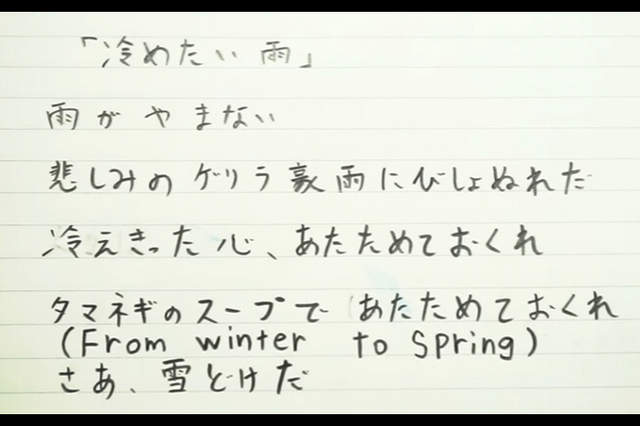 「冷めたい雨」
雨がやまない
悲しみのゲリラ豪雨にびしょぬれだ
冷えきった心、あたためておくれ
タマネギのスープで あたためておくれ
(From winter to Spring)
さあ、雪どけだ